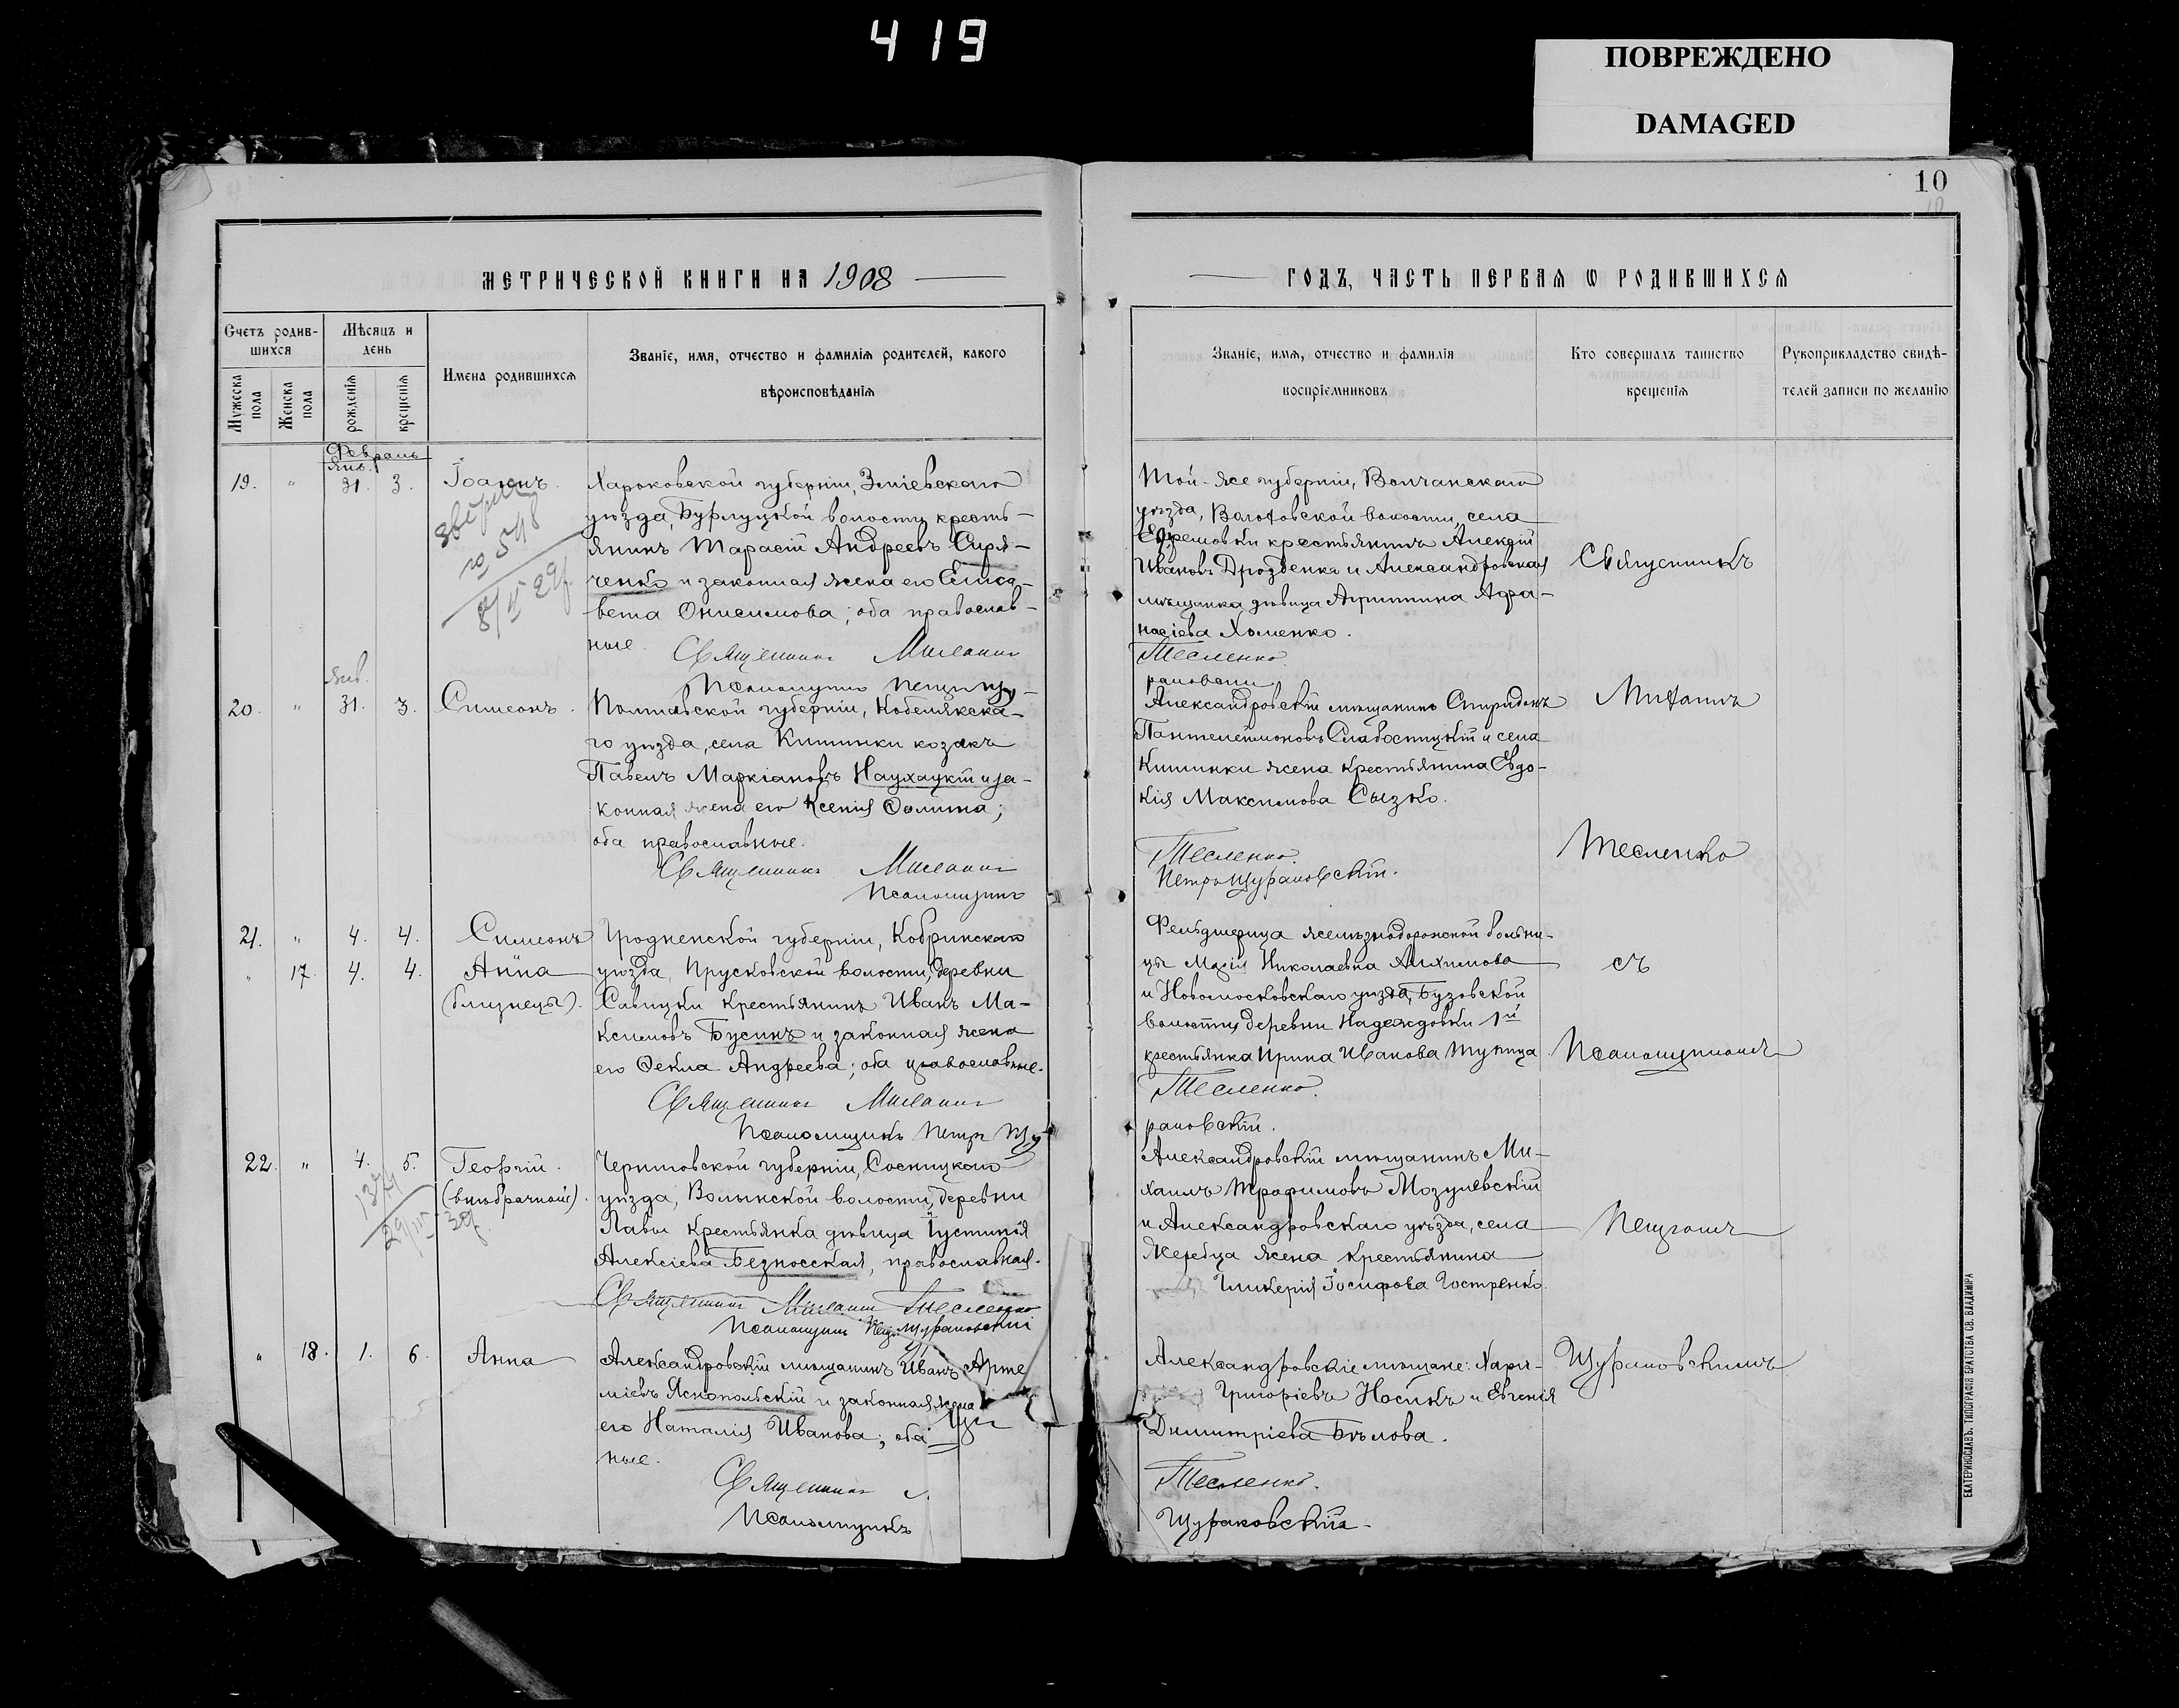 419
ПОВРЕЖДЕНО
DAMAGED
МЕТРИЧЕСКОЙ КНИГИ НА 1908
Счетъ родив-
шихся
Мѣсяцъ и
день
Имена родившихся
Званіе, имя, отчество и фамилія родителей, какого
вѣроисповѣданія
Мужеска
пола
Женска
пола
рожденія
крещенія
Февраль
Янв.
19. " 31. 3. Іоаннъ.
Харьковской губерніи, Зміевского
уѣзда, Бурлуцкой волости кресть-
янинъ Тарасій Андреевъ Сиря-
ченко и законная жена его Елиса-
вета Онисимова; оба православ-
ные.
Священникъ Михаилъ
Псаломщикъ Петръ Щу-
янв.
20. " 31. 3. Симеонъ.
Полтавской губерніи, Кобелякска-
го уѣзда, села Кишинки козакъ
Павелъ Маркіановъ Наухацкій и за-
конная жена его Ксенія Фомина;
оба православные.
Священникъ Михаилъ
Псаломщикъ
21. " 4. 4. Симеонъ
" 17. 4. 4. Анна
(близнецы).
Гродненской губерніи, Кобринскаго
уѣзда, Прусковской волости, деревни
Савицки крестьянинъ Иванъ Ма-
ксимовъ Бусинъ и законная жена
его Ѳекла Андреева; оба православные.
Священникъ Михаилъ
Псаломщикъ Петръ Щу
22. " 4. 5. Георгій.
(внѣбрачный).
Черниговской губерніи, Сосницкаго
уѣзда, Волынской волости, деревни
Лавы крестьянка дѣвица Іустинія
Алексіева Безносская, православная.
Священникъ Михаилъ Тесленко
Псаломщикъ Петръ Щураковскій
" 18. 1. 6. Анна
Александровскій мѣщанинъ Иванъ Арте
міевъ Яснопольскій и законная жена
его Наталія Иванова; оба
ные.
Священникъ
Псаломщикъ
10
ГОДЪ, ЧАСТЬ ПЕРВАЯ Ѡ РОДИВШИХСЯ
Званіе, имя, отчество и фамилія
воспріемниковъ
Кто совершалъ таинство
крещенія
Рукоприкладство свидѣ-
телей записи по желанію
Той-же губерніи, Волчанскаго
уѣзда, волости, села
Ефремовки крестьянинъ Алексій
Ивановъ Дрозденко и Александровская
мѣщанка дѣвица Агриппина Афа-
насіева Хоменко.
Тесленко.
раковскій
Александровскій мѣщанинъ Спиридонъ
Пантелеимоновъ Слабоспицкій и села
Кишинки жена крестьянина Евдо-
кія Максимова Сызко.
Тесленко.
Петръ Щураковскій.
Фельдшерица желѣзнодорожной больни-
цы Марія Николаевна Анхимова
и Новомосковскаго уѣзда, Бузовской
волости деревни Надеждовки 1й
крестьянка Ирина Иванова Тупица
Тесленко.
раковскій.
Александровскій мѣщанинъ Ми-
хаилъ Трофимовъ Мозулевскій
и Александровскаго уѣзда, села
Жеребца жена крестьянина
Гликерія Іосифова Гостренко.
Александровскіе мѣщане: Хари-
Григоріевъ Носикъ и Евгенія
Димитріева Бѣлова.
Тесленко.
Щураковскій.
Священникъ
Михаилъ
Тесленко
съ
Псаломщикомъ
Петромъ
Щураковскимъ
ЕКАТЕРИНОСЛАВЪ. ТИПОГРАФІЯ БРАТСТВА СВ. ВЛАДИМІРА